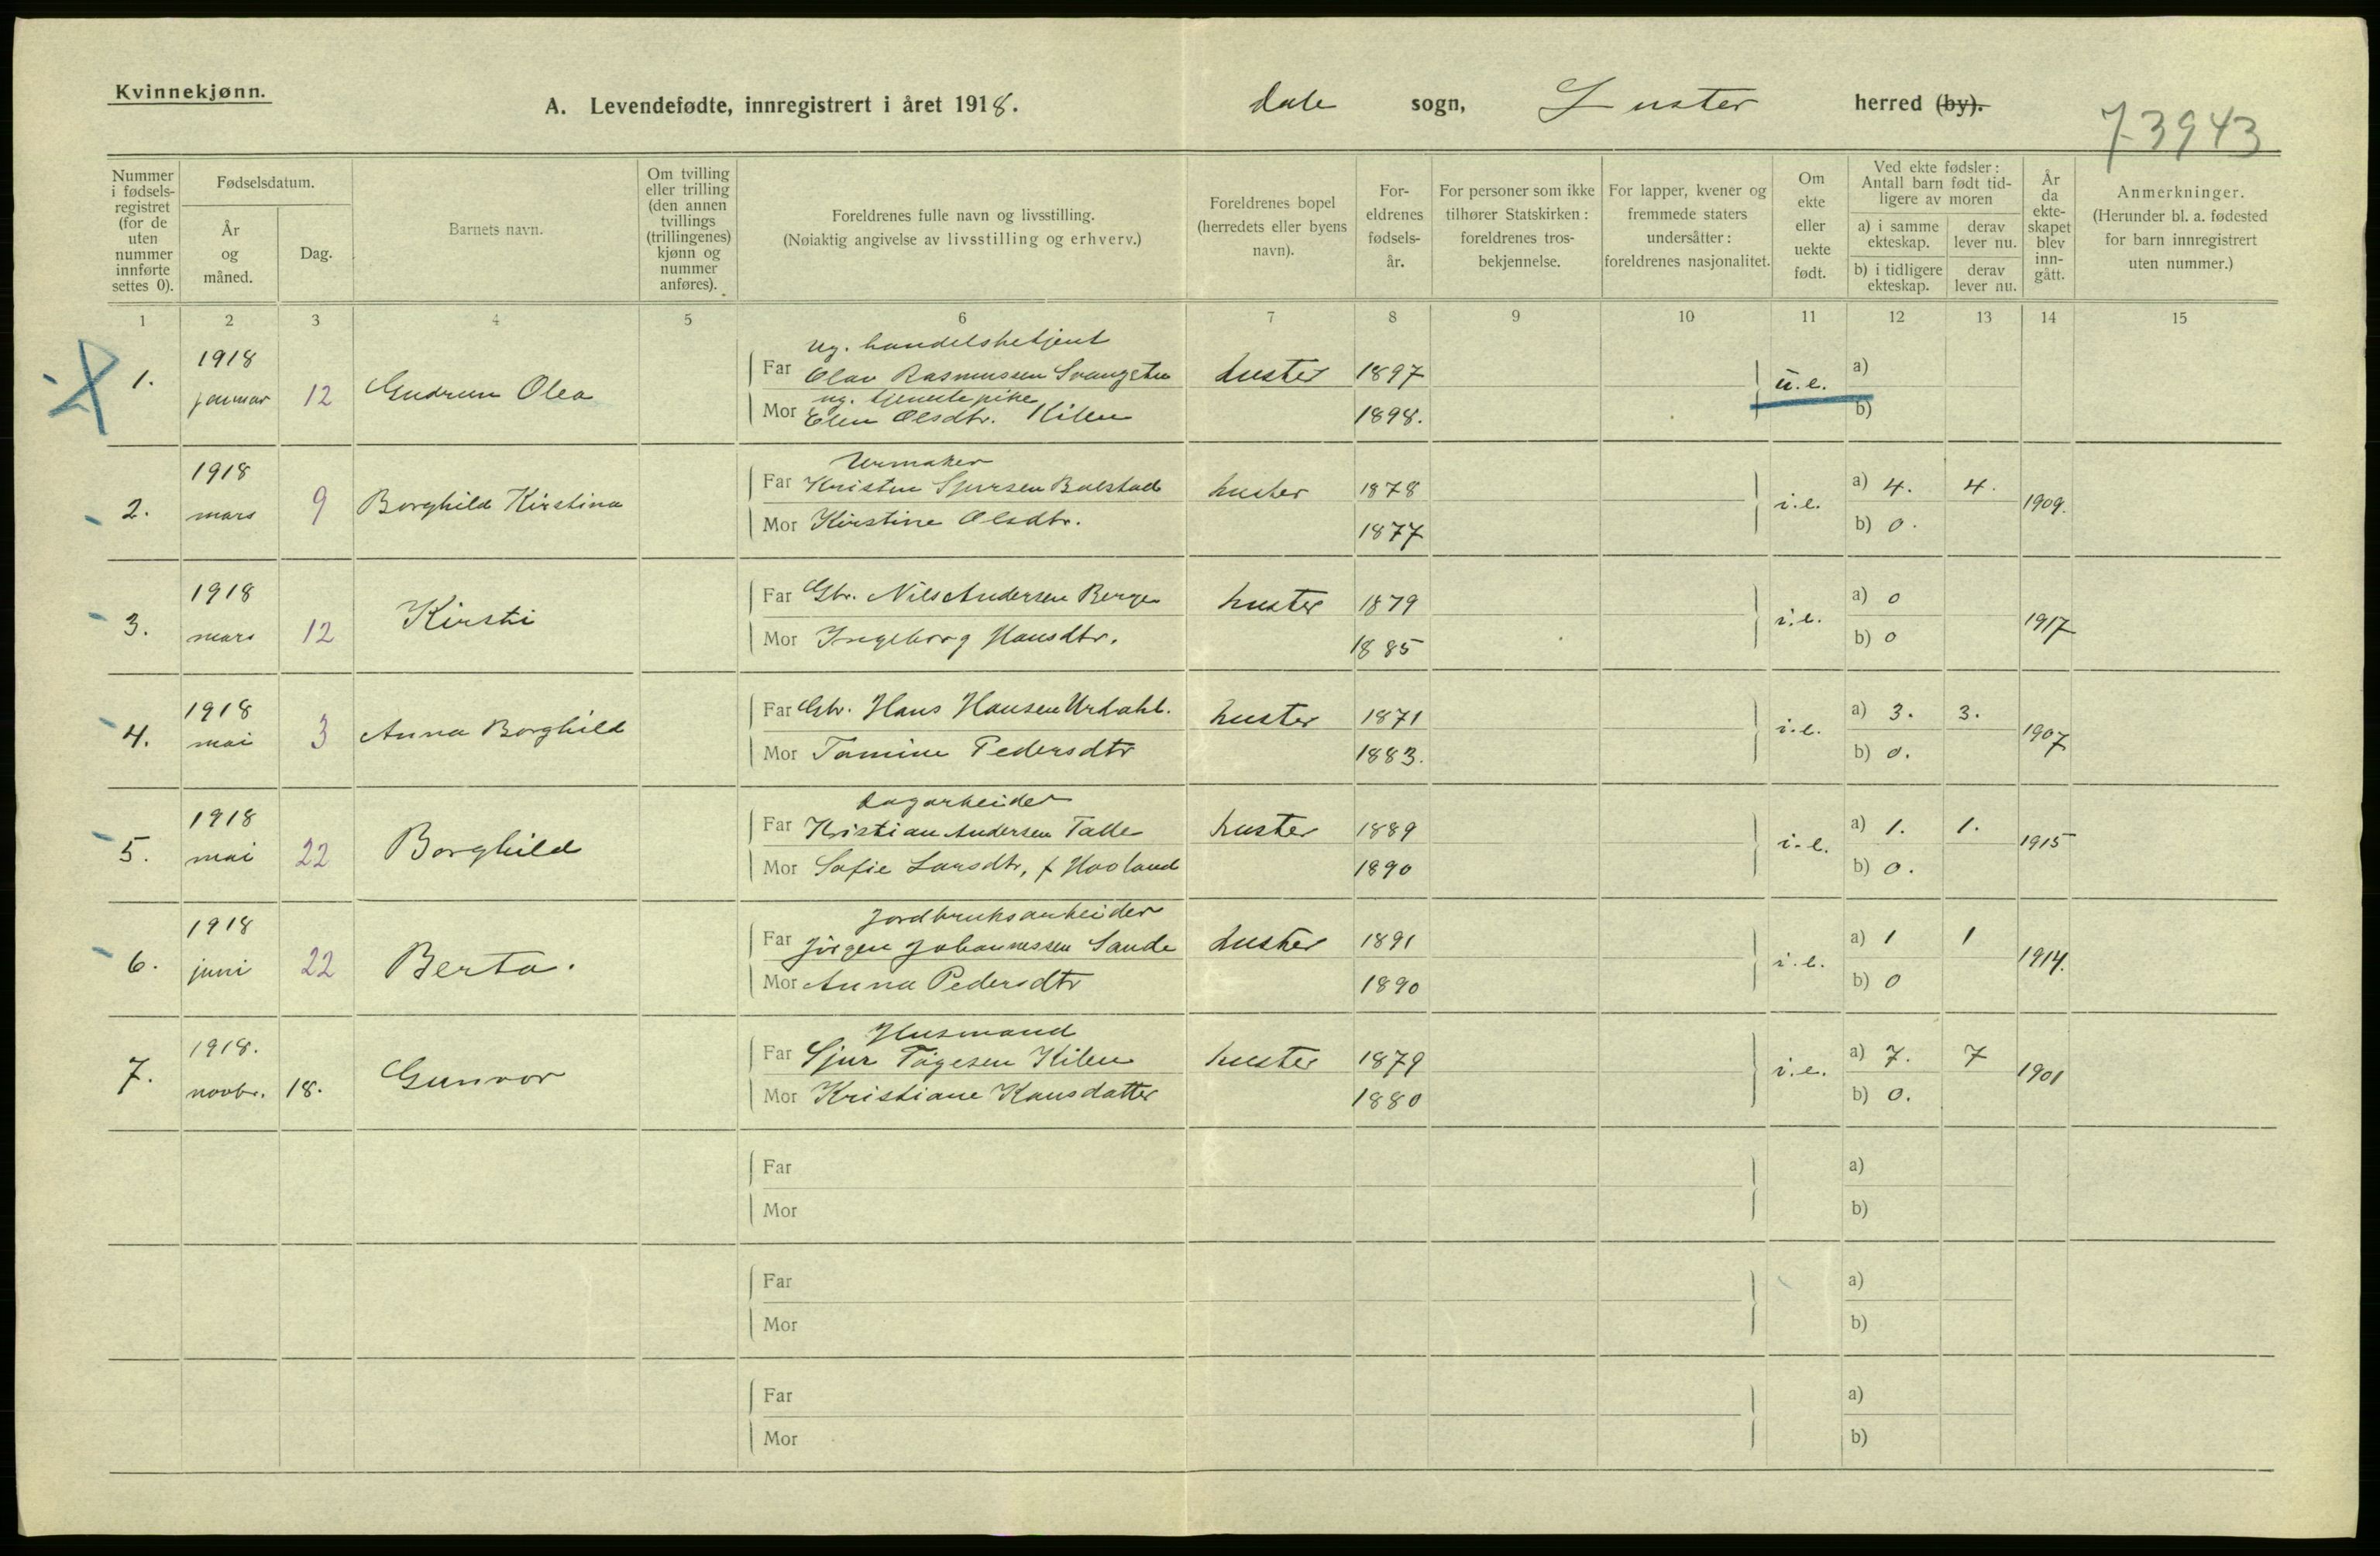 Kvinnekjønn.
A. Levendefødte, innregistrert i året 1918.
Dale sogn, Luster herred (by).
73943
Nummer i fødsels-registret (for de uten nummer innførte settes 0).
Fødselsdatum.
År og måned.
Dag.
Barnets navn.
Om tvilling eller trilling (den annen tvillings (trillingenes) kjønn og nummer anføres).
Foreldrenes fulle navn og livsstilling. (Nøiaktig angivelse av livsstilling og erhverv.)
Foreldrenes bopel (herredets eller byens navn).
For-eldrenes fødsels-år.
For personer som ikke tilhører Statskirken: foreldrenes tros-bekjennelse.
For lapper, kvener og fremmede staters undersåtter: foreldrenes nasjonalitet.
Om ekte eller uekte født.
Ved ekte fødsler: Antall barn født tid-ligere av moren
a) i samme ekteskap.
derav lever nu.
b) i tidligere ekteskap.
derav lever nu.
År da ekte-skapet blev inn-gått.
Anmerkninger. (Herunder bl. a. fødested for barn innregistrert uten nummer.)
1 2 3 4 5 6 7 8 9 10 11 12 13 14 15
ug. handelsbetjent
1. 1918 januar 12 Gudrun Olea
Far Olav Rasmussen Luster 1897
u.e. a)
ug. tjenestepike
Mor Elen Olsdtr. Kilen 1898.
b)
Urmaker
2. 1918 mars 9 Borghild Kirstina
Far Kristen Sjursen Bolstad Luster 1878
i.e. a) 4. 4. 1909.
Mor Kirstine Olsdtr. 1877
b) 0.
3. 1918 mars 12 Kirsti
Far Gbr. Nils Andersen Berge Luster 1879
i.e. a) 0 1917
Mor Ingeborg Hansdtr. 1885
b) 0
4. 1918 mai 3 Anna Borghild
Far Gbr. Hans Hansen Urdahl. Luster 1871
i.e. a) 3. 3. 1907
Mor Tomine Pedersdtr 1883.
b) 0.
Dagarbeider
5. 1918 mai 22 Borghild
Far Kristian Andersen Talle Luster 1889
i.e. a) 1. 1. 1915
Mor Sofie Larsdtr, f Haoland 1890
b) 0.
Jordbruksarbeider
6. 1918 juni 22 Berta.
Far Jørgen Johannessen Sande Luster 1891
i.e. a) 1 1 1914.
Mor Anna Pedersdtr 1890
b) 0
Husmand
7. 1918. novbr. 18. Gunvor
Far Sjur Tøgesen Kilen Luster 1879
i.e. a) 7. 7 1901
Mor Kristiane Hansdatter 1880
b) 0.
Far a)
Mor b)
Far a)
Mor b)
Far a)
Mor b)